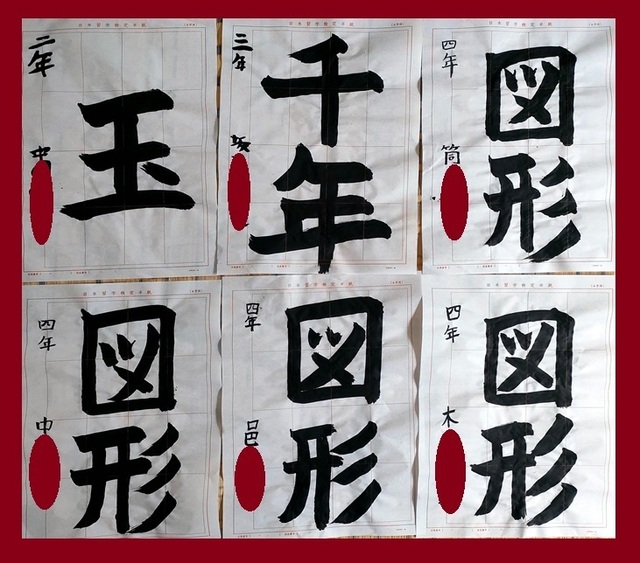 玉
二年
千年
三年 坂
図形
四年 筒
図形
四年 中
図形
四年 邑
図形
四年 木